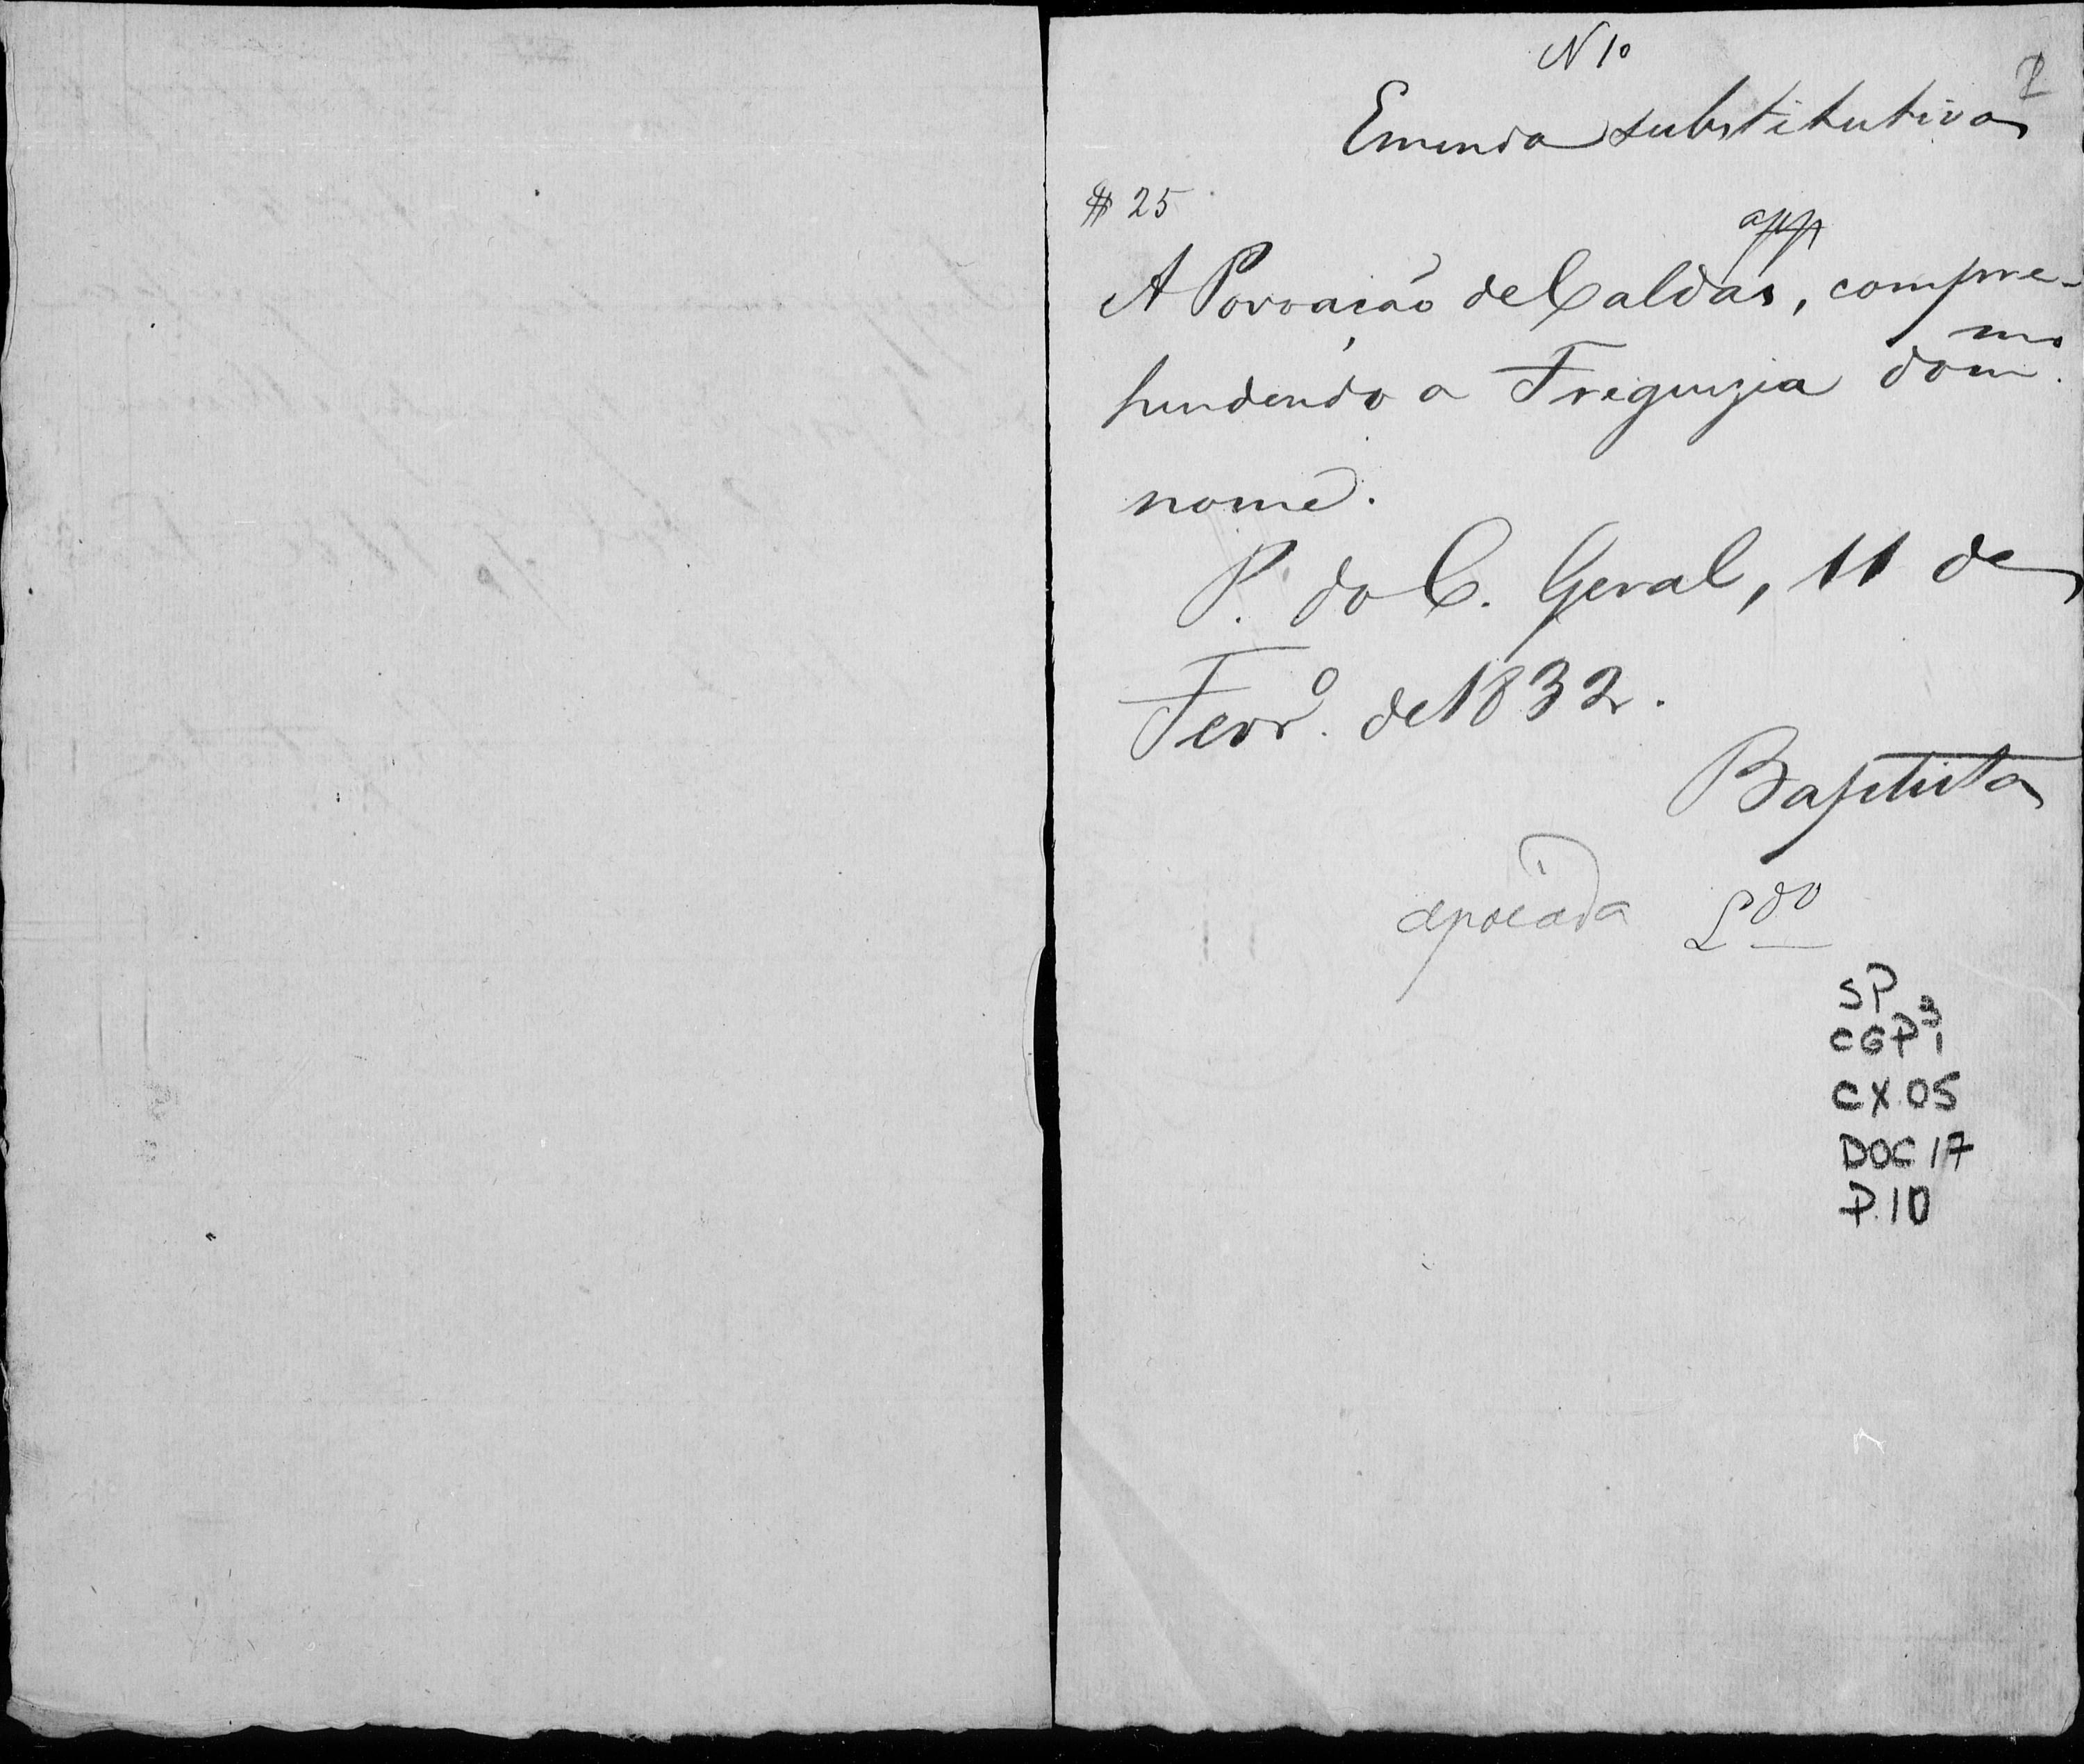 N 10
Emenda substitutiva
# 25
app
A Povoação de Caldas, compre-
hendendo a Freguezia dom.mo
nome.
P. do C. Geral, 11 de
Fevr.o de 1832.
Baptista
apoiada
SP
CGP1 3
CX.05
DOC 17
P.10